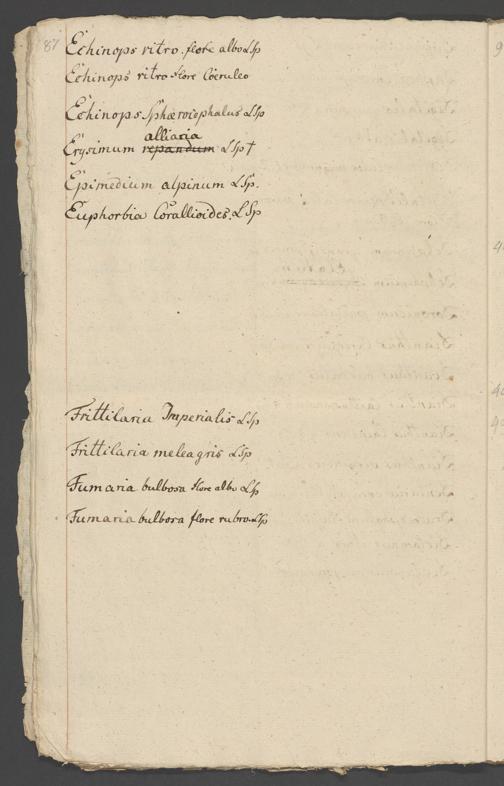 87
Echinops ritro. flore albo LSp
Echinops ritro flore Coeruleo
Echinops Sphaerocephalus LSp
alliaria
Erysimum repandum LSp †
Epimedium alpinum LSp.
Euphorbia Corallioides. LSp
Frittilaria Imperialis LSp
Frittilaria meleagris LSp
Fumaria bulbosa flore albo LSp
Fumaria bulbosa flore rubro LSp